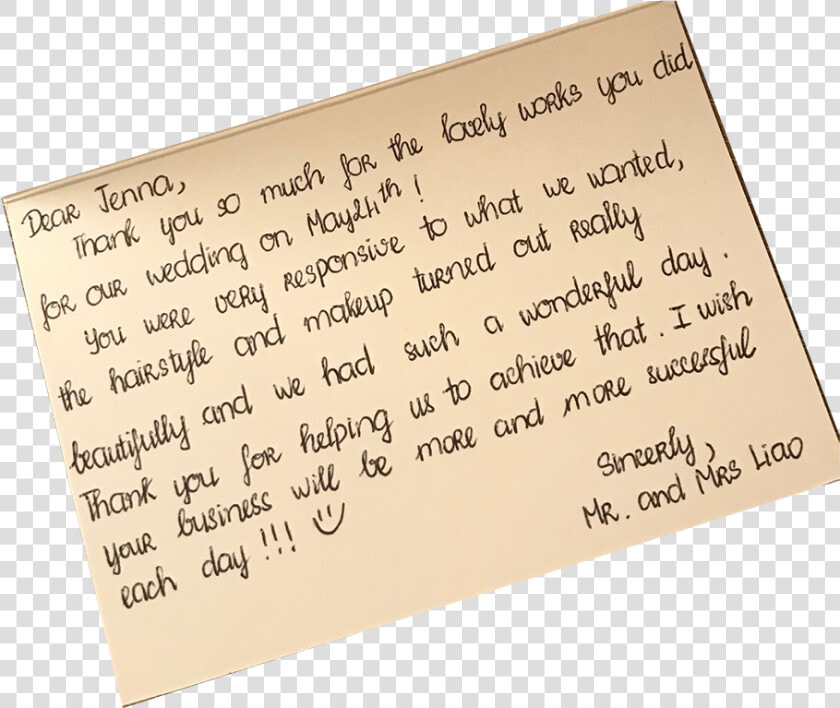 Dear Jenna,
Thank you so much for the lovely works you did
for our wedding on May24th!
You were very responsive to what we wanted,
the hairstyle and makeup turned out really
beautifully and we had such a wonderful day.
Thank you for helping us to achieve that. I wish
your business will be more and more successful
each day!!! :)
Sincerly,
Mr. and Mrs Liao